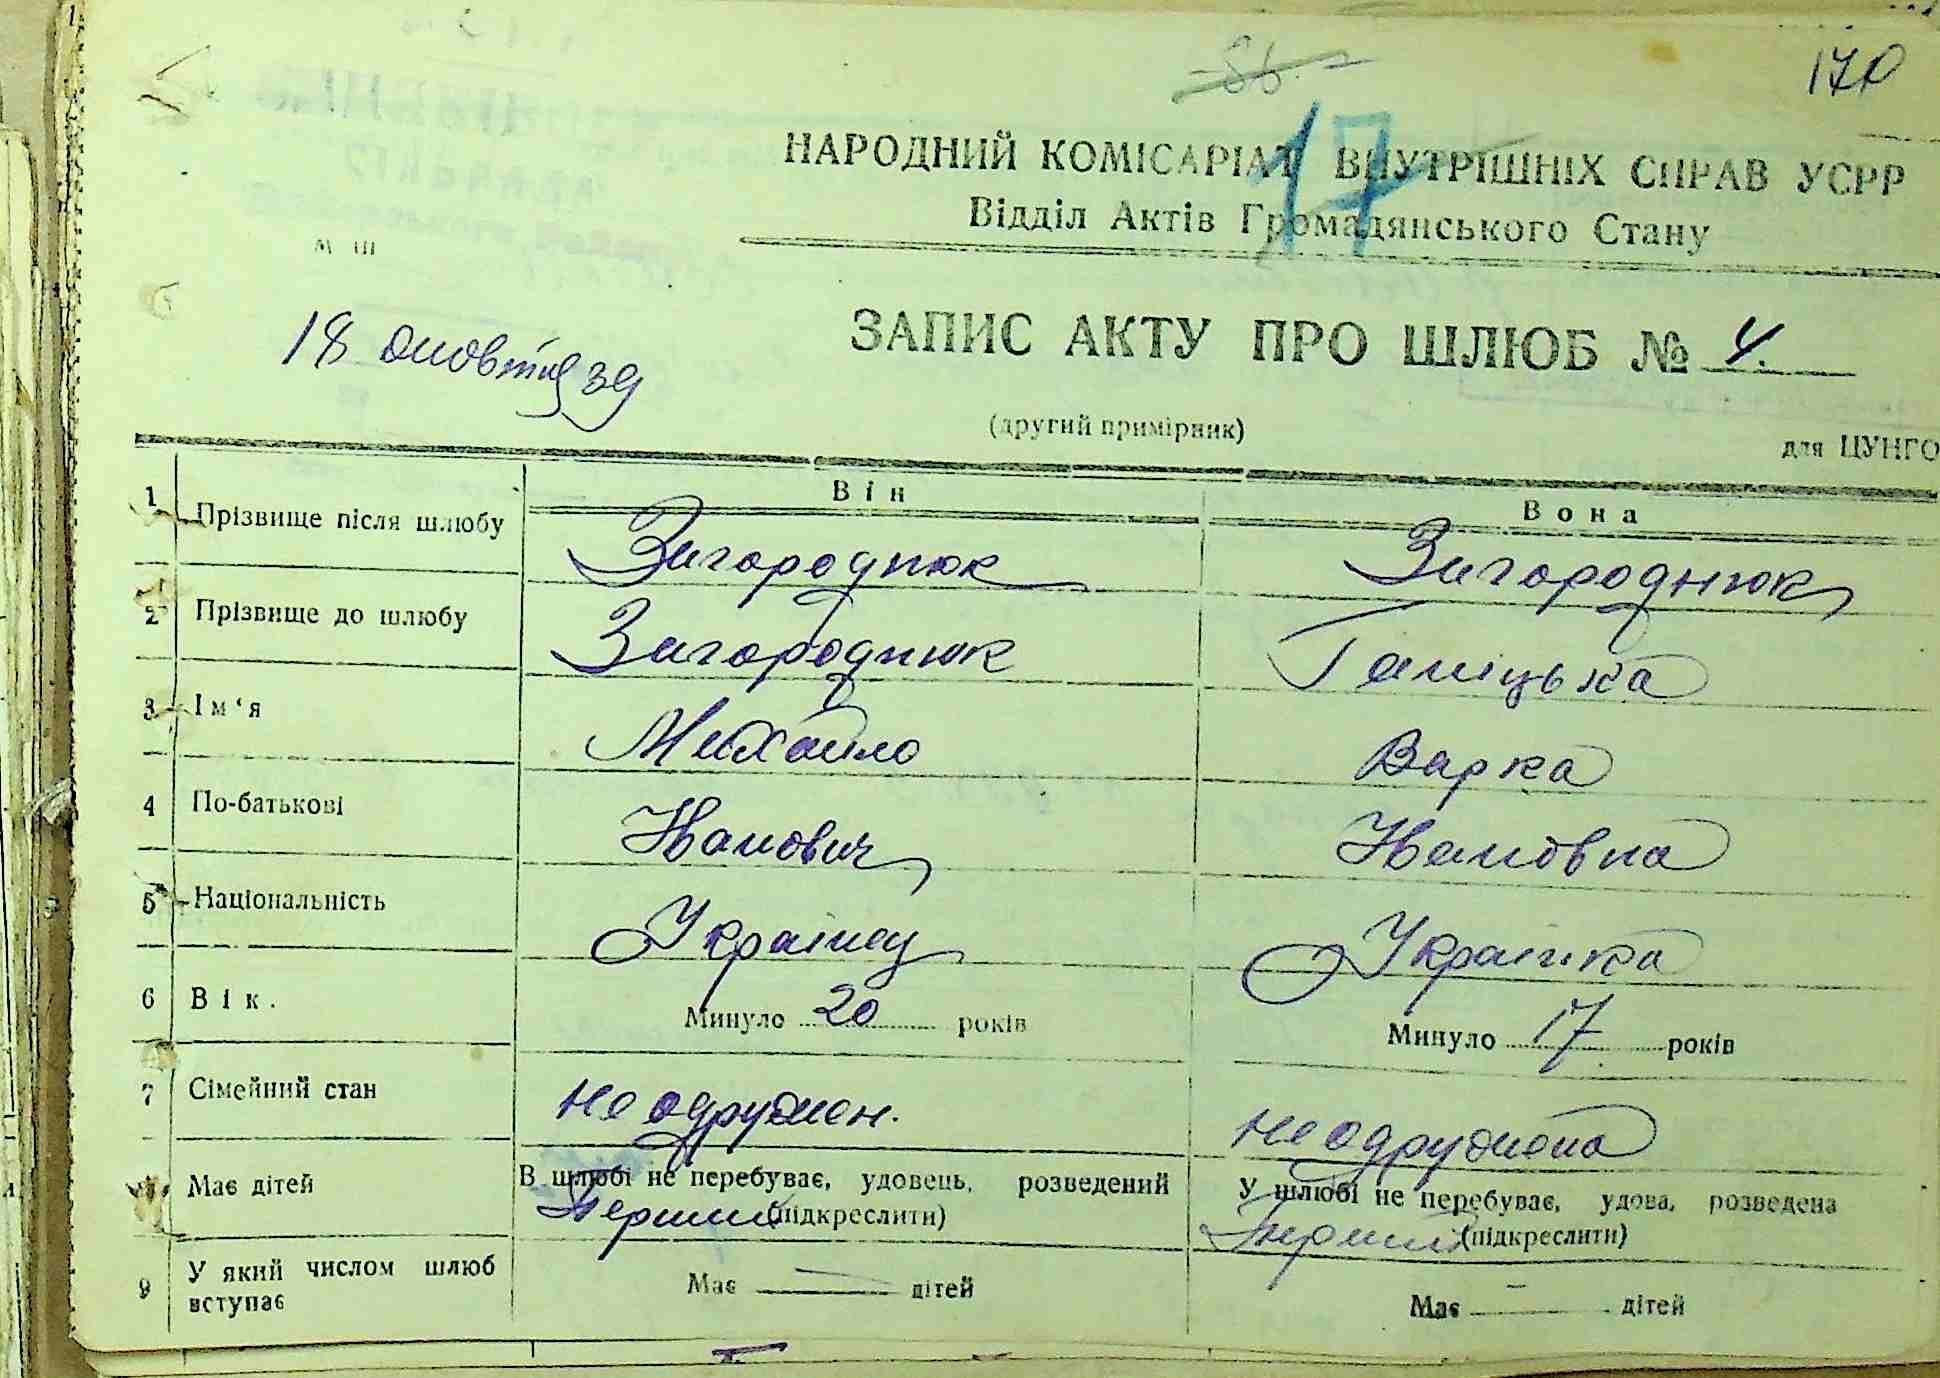 170
17
НАРОДНИЙ КОМІСАРІАТ ВНУТРІШНІХ СПРАВ УСРР
Відділ Актів Громадянського Стану
18 жовтня 39
ЗАПИС АКТУ ПРО ШЛЮБ № 4.
(другий примірник)
для ЦУНГО
Він Вона
1 Прізвище після шлюбу Загороднюк Загороднюк
2 Прізвище до шлюбу Загороднюк
3 Ім‘я Михайло Варка
4 По-батькові Іванович Івановна
5 Національність Українец Українка
6 Вік. Минуло 20 років Минуло 17 років
7 Сімейний стан не одружен. не одружена
Має дітей В шлюбі не перебуває, удовець, розведений У шлюбі не перебуває, удова, розведена
Перший (підкреслити) Перший (підкреслити)
9 У який числом шлюб вступає Має — дітей Має — дітей